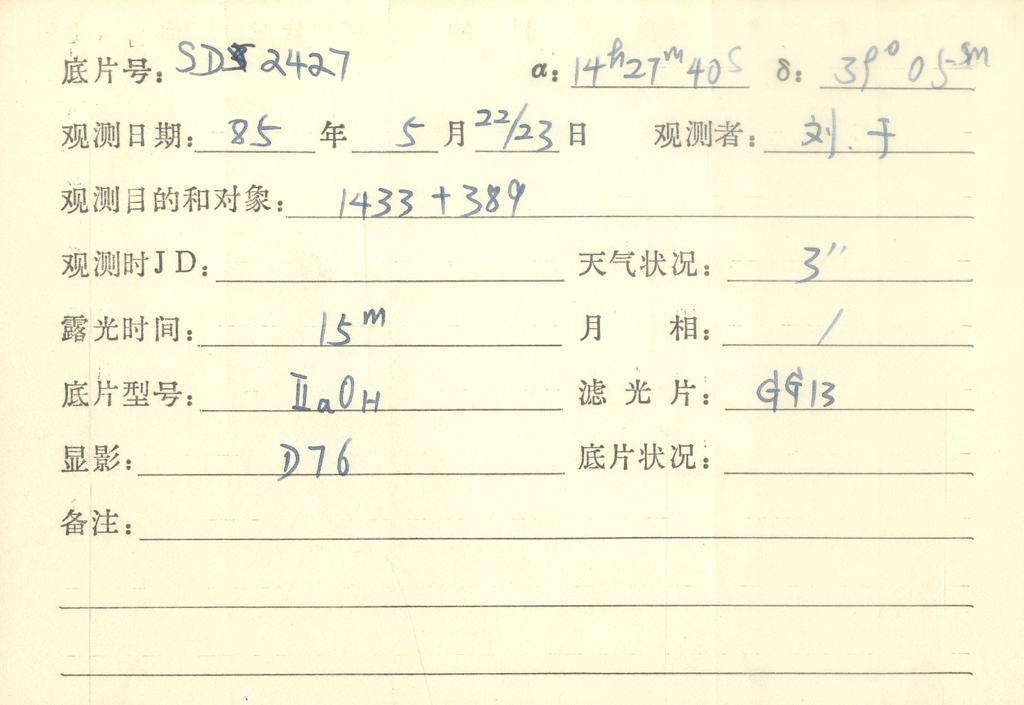 底片号: SD 2427 α: 14h27m40s δ: 39° 05
观测日期: 85 年 5 月 22/23 日 观测者: 刘. 于
观测目的和对象: 1433+389
观测时JD: 天气状况: 3″
露光时间: 15m 月 相: /
底片型号: ⅡaOH 滤 光 片: GG13
显影: D76 底片状况:
备注: